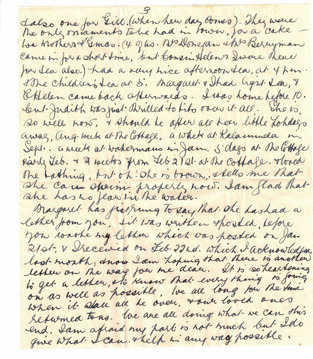 3
& also one for Gill. (When her day comes). They were
the only ornaments to be had in town, for a cake –
two Mothers & Gmas. Mrs Donegan & Mrs Berryman
came in for a short time, but Cousin Helen & I were there
for tea also, had a very nice afternoon tea, at 4 pm.
& the Children's tea at 5. Margaret & I had light tea,
& Helen came back afterwards. I was home before 10.
Aunt Judith was just thrilled to bits over it all. She is,
so well now, & should be after all her little holidays
away, Aug. week at the Cottage. A while at Kalamunda in
Sept. a week at Watermans in Jan, 5 days at the Cottage
early Feb. & 2 weeks from Feb 21st at the Cottage. & loved
the bathing, but oh! she is brown, & tells me that
she can swim properly now. I am glad that
she has no fear in the water.
Margaret has just rung to say that she has had a
letter from you, it was written & posted before
you my letter which was posted on Jan
21st. & I received on Feb 22nd. which I acknowledged
last month, & now I am hoping that there is another
letter on the way for me dear. It is so heartening
to get a letter, & to know that everything is going
on as well as possible, We all long for the time
when it shall all be over, & our loved ones
returned to us. We are all doing what we can this
end. I am afraid my part is not much but I do
give what I can & help in any way possible.